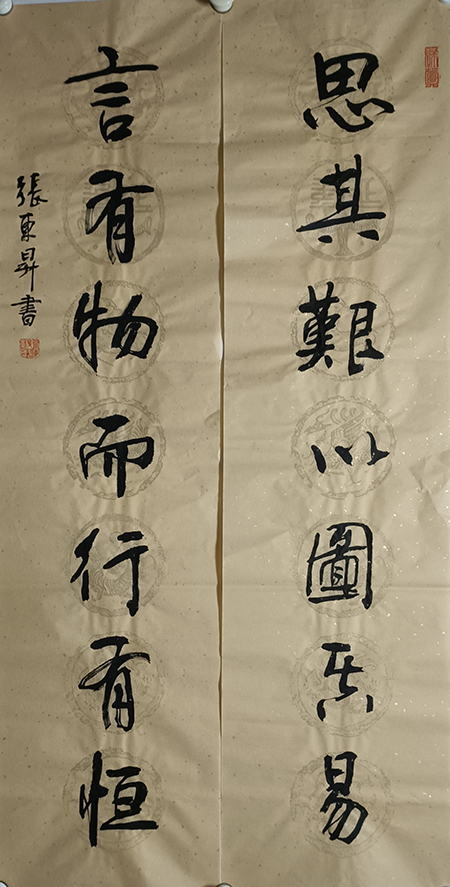 思其艱以圖其易
言有物而行有恒
張東昇書